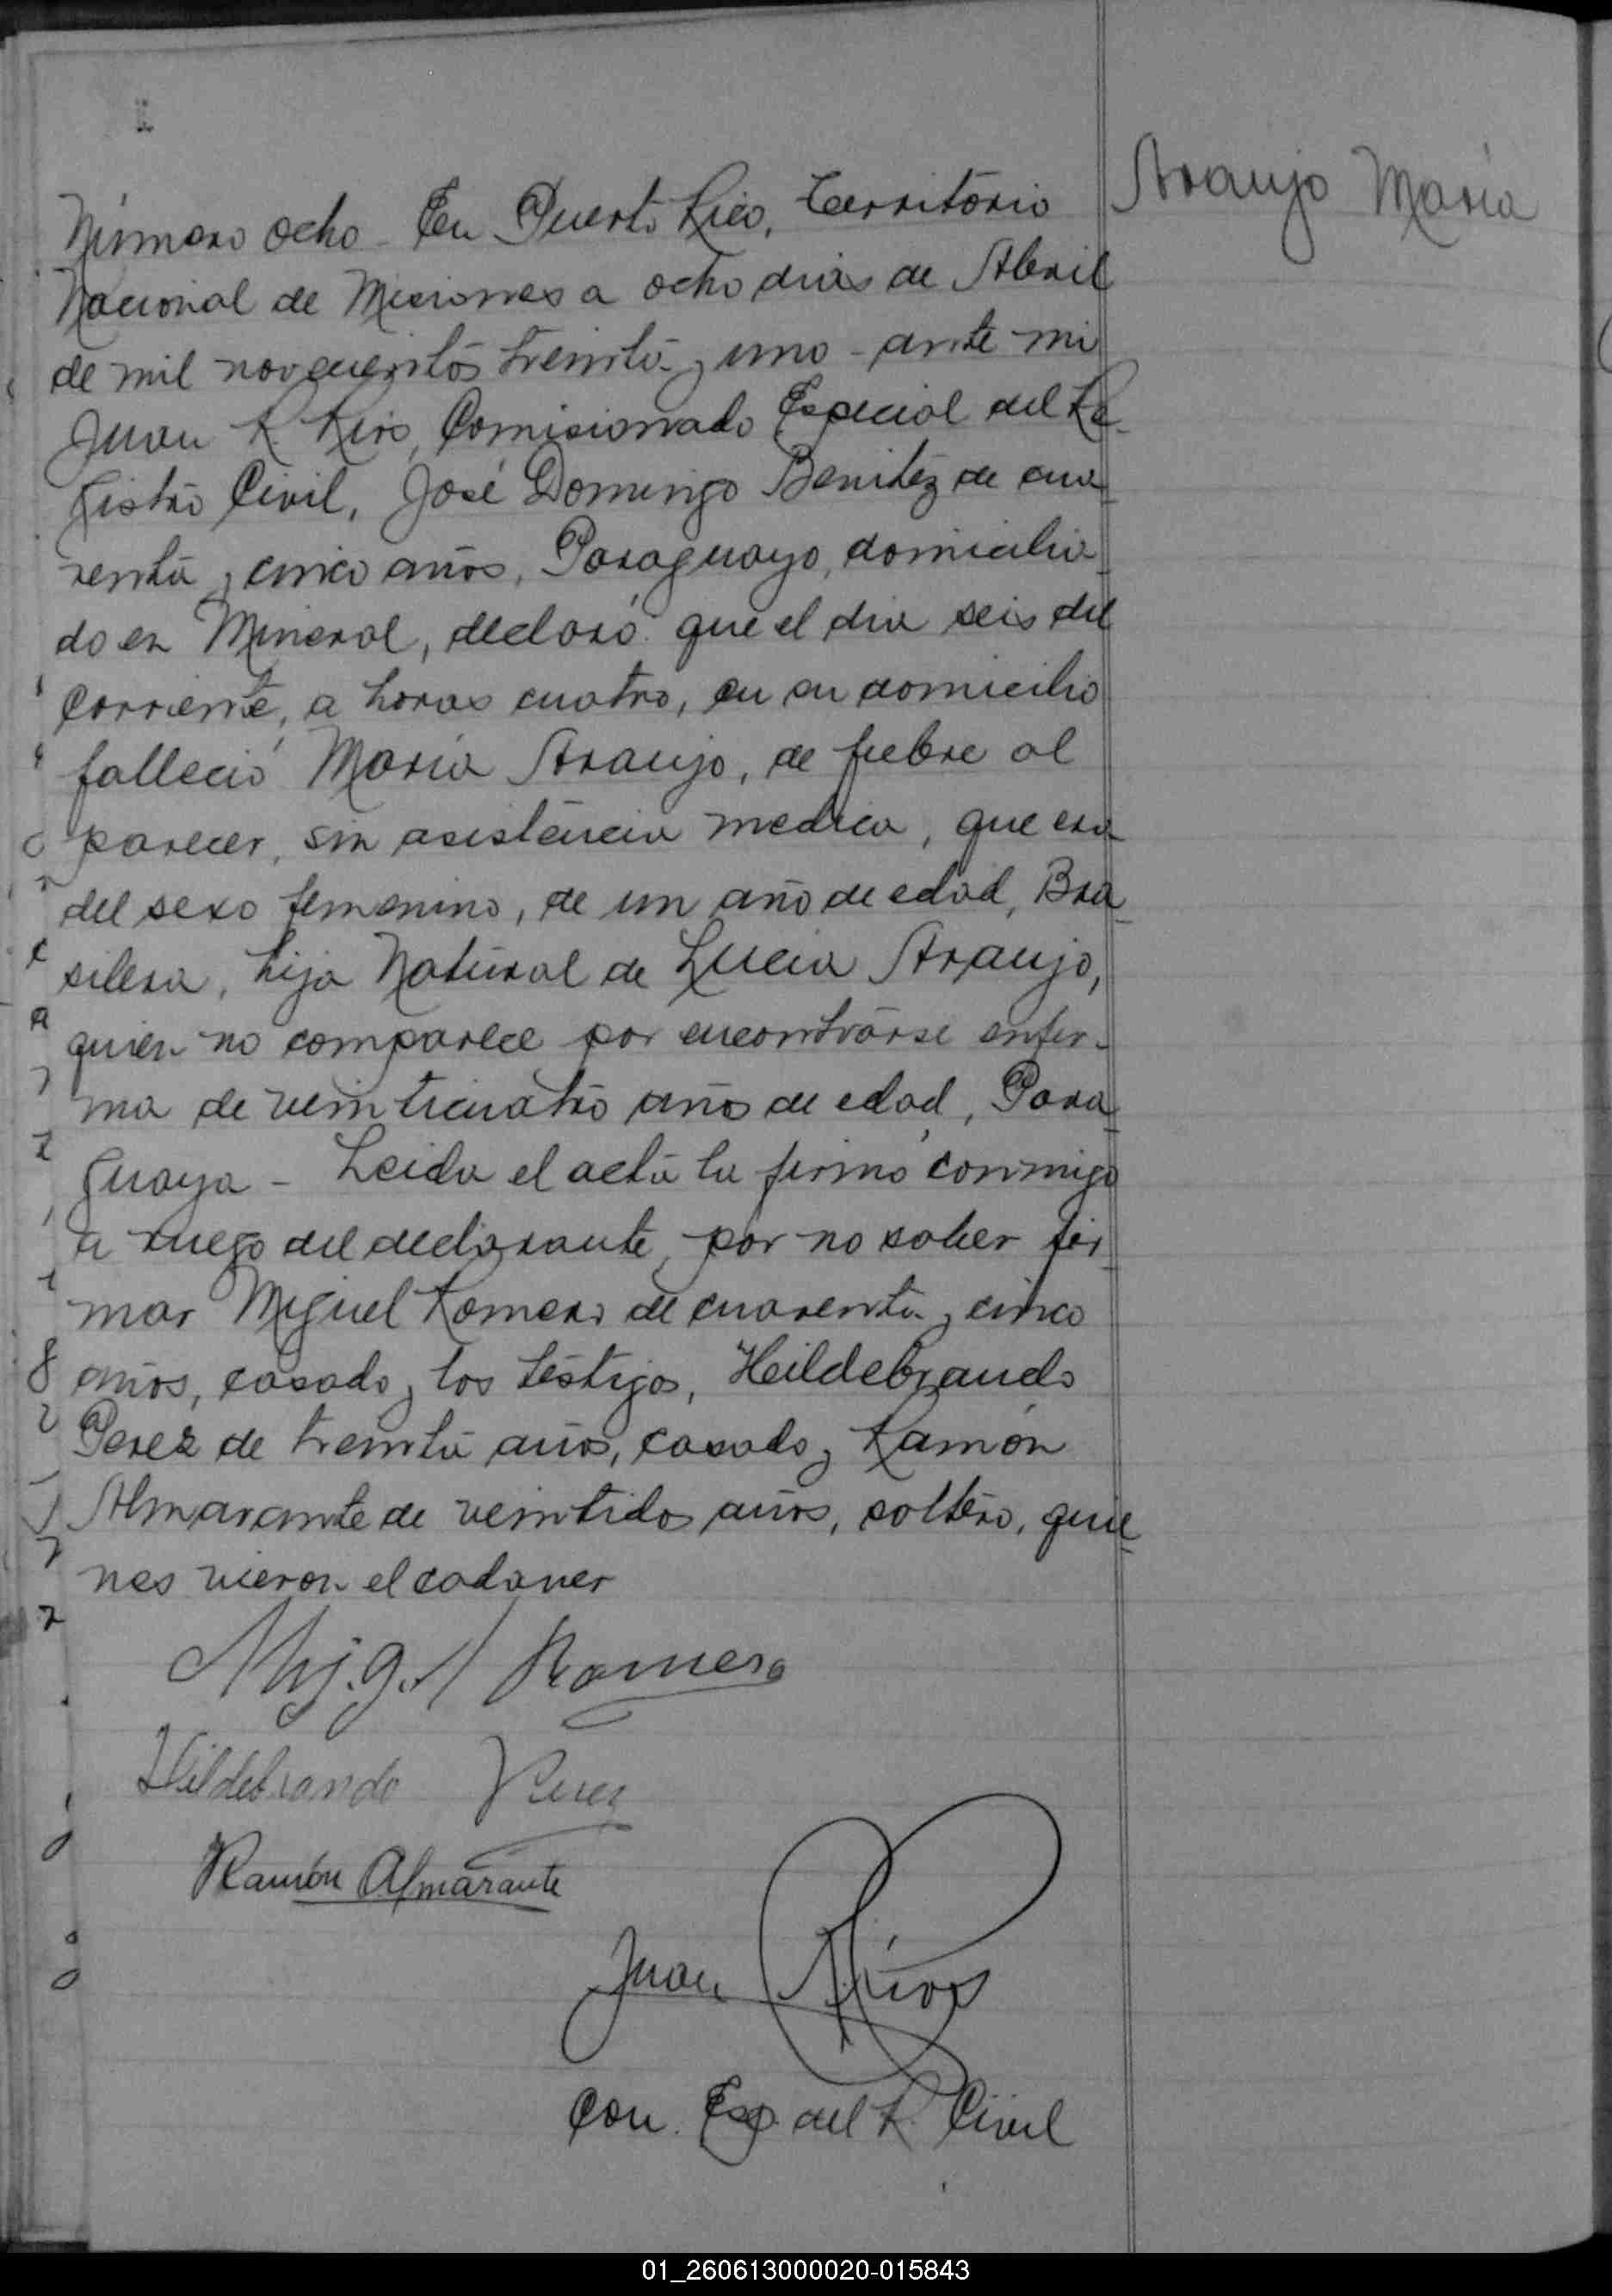 Araujo María
Número ocho - En Puerto Rico, Território
Nacional de Misiones a ocho dias de Abril
de mil novecientos treinta y uno - ante mi
Juan R Rios, Comisionado Especial del Re-
gistro Civil, José Domingo Benitez de cua-
renta y cinco años, Paraguayo, domicilia-
do en Mineral, declaró: que el dia seis del
corriente, a horas cuatro, en su domicilio
falleció María Araujo, de fiebre al
parecer, sin asistencia medica, que era
del sexo femenino, de un año de edad, Bra-
silera, hija Natural de Lucia Araujo,
quien no comparece por encontrarse enfer-
ma de veinticuatro años de edad, Para-
guaya - Leida el acta la firmó conmigo
a ruego del declarante, por no saber fir-
mar Miguel Romero de cuarenta y cinco
años, casado y los testigos, Heildebrando
Perez de treinta años, casado y Ramón
Almarante de veintidos años, soltero, quie-
nes vieron el cadaver
Mig.l Romero
Hildebrando Perez
Ramón Almarante
Juan R. Ríos
Com. Esp. del R. Civil
01_260613000020-015843